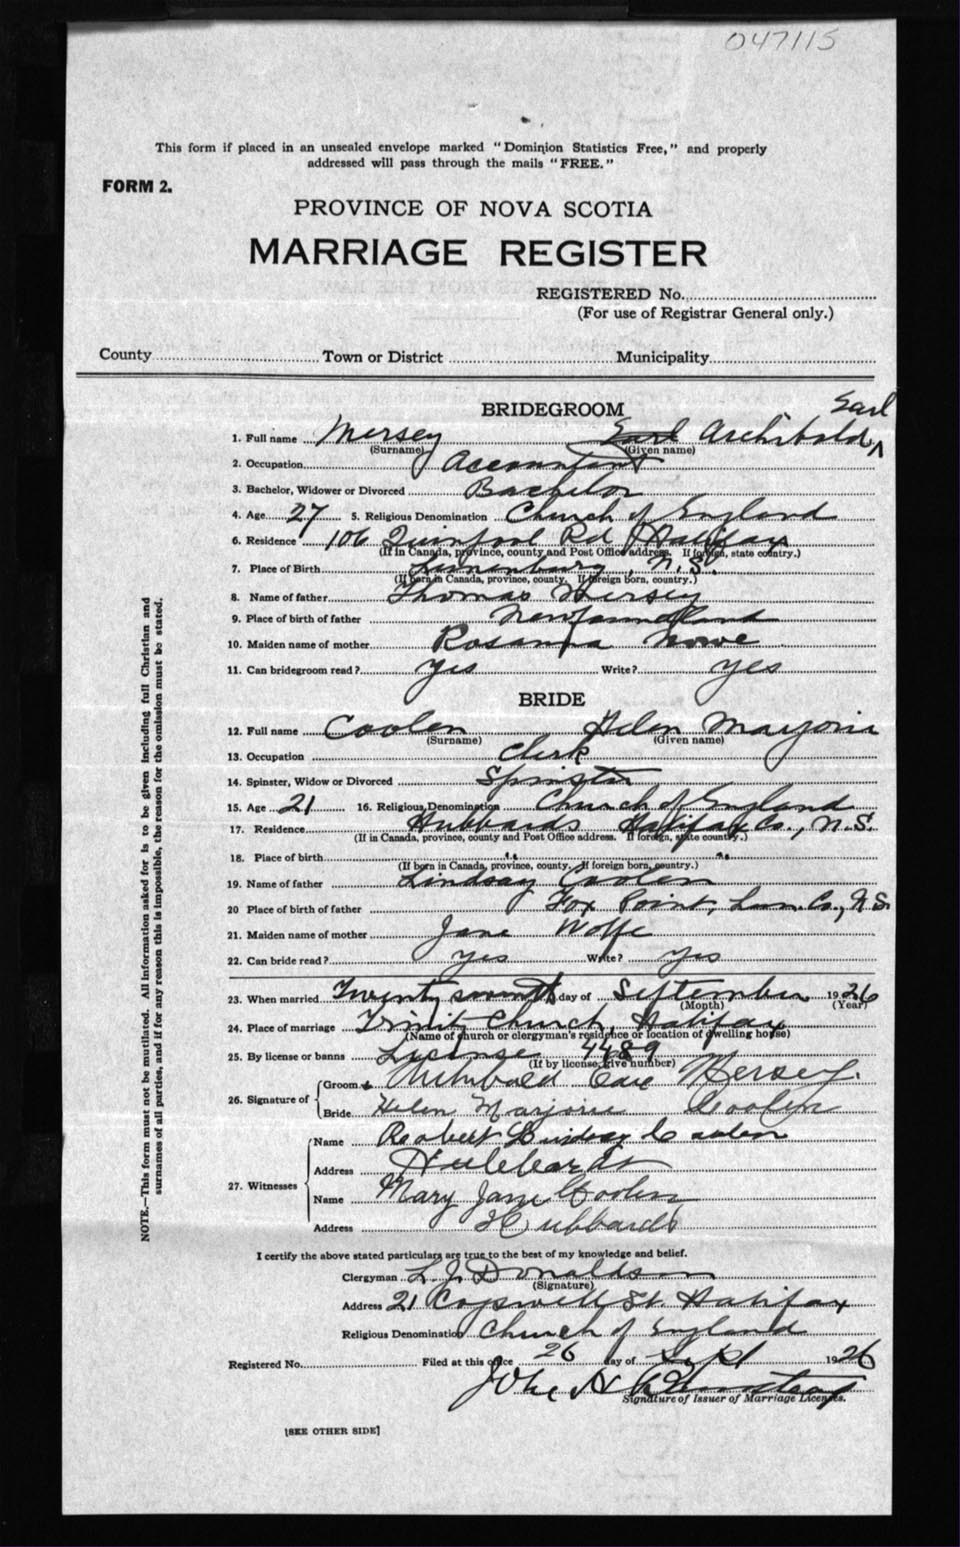 047115
This form if placed in an unsealed envelope marked "Dominion Statistics Free," and properly
addressed will pass through the mails "FREE."
FORM 2.
PROVINCE OF NOVA SCOTIA
MARRIAGE REGISTER
REGISTERED No.
(For use of Registrar General only.)
County Town or District Municipality
BRIDEGROOM
1. Full name Mersey Earl Archibald ^ Earl
(Surname) (Given name)
2. Occupation Accountant
3. Bachelor, Widower or Divorced Bachelor
4. Age 27 5. Religious Denomination Church of England
6. Residence 106 Quinpool Rd Halifax
(If in Canada, province, county and Post Office address. If foreign, state country.)
7. Place of Birth Lunenburg, N.S.
(If born in Canada, province, county. If foreign born, country.)
8. Name of father Thomas Mersey
9. Place of birth of father Newfoundland
10. Maiden name of mother Rosanna Nowe
11. Can bridegroom read? Yes Write? Yes
BRIDE
12. Full name Coolen Helen Marjorie
(Surname) (Given name)
13. Occupation Clerk
14. Spinster, Widow or Divorced Spinster
15. Age 21 16. Religious Denomination Church of England
17. Residence Hubbards Halifax Co., N.S.
(If in Canada, province, county and Post Office address. If foreign, state country.)
18. Place of birth " "
(If born in Canada, province, county. If foreign born, country.)
19. Name of father Lindsay Coolen
20 Place of birth of father Fox Point, Lun. Co., N.S.
21. Maiden name of mother Jane Wolfe
22. Can bride read? Yes Write? Yes
23. When married Twenty seventh day of September 1926
(Month) (Year)
24. Place of marriage Trinity Church, Halifax
(Name of church or clergyman's residence or location of dwelling house)
25. By license or banns License 4489
(If by license, give number)
26. Signature of
Groom Archibald Earl Mersey.
Bride Helen Marjorie Coolen
27. Witnesses
Name Robert Lindsay Coolen
Address Hubbards
Name Mary Jane Coolen
Address Hubbards
I certify the above stated particulars are true to the best of my knowledge and belief.
Clergyman L. J. Donaldson
(Signature)
Address 21 Cogswell St. Halifax
Religious Denomination Church of England
Registered No. Filed at this office 26 day of Sept 1926
John H
Signature of Issuer of Marriage Licenses.
[SEE OTHER SIDE]
NOTE.—This form must not be mutilated. All information asked for is to be given including full Christian and
surnames of all parties, and if for any reason this is impossible, the reason for the omission must be stated.